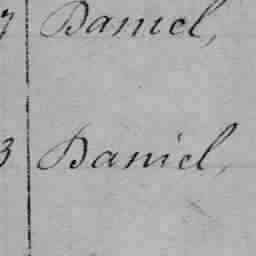 7 Daniel,
3 Daniel,